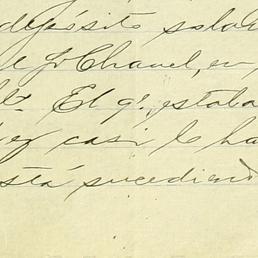 depósito sola
Chavel, en
El qe. estaba
ez casi lo ha
stá sucediend